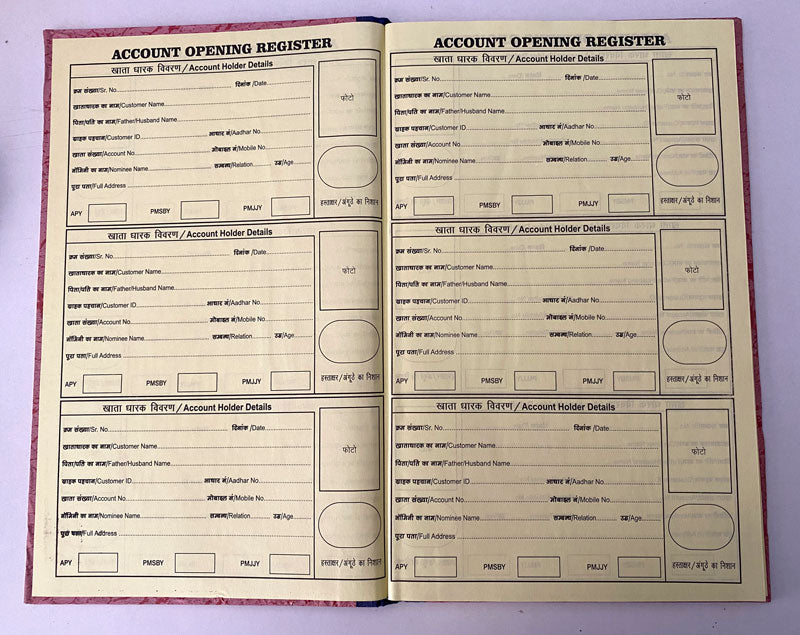 ACCOUNT OPENING REGISTER
खाता धारक विवरण/Account Holder Details
क्रम संख्या/Sr. No. दिनांक /Date
खाताधारक का नाम/Customer Name
पिता/पति का नाम/Father/Husband Name
ग्राहक पहचान/Customer ID आधार नं/Aadhar No.
खाता संख्या/Account No. मोबाइल नं/Mobile No.
नॉमिनी का नाम/Nominee Name सम्बन्ध/Relation उम्र/Age
पूरा पता/Full Address
फोटो
हस्ताक्षर/अंगूठे का निशान
APY PMSBY PMJJY
खाता धारक विवरण/Account Holder Details
क्रम संख्या/Sr. No. दिनांक /Date
खाताधारक का नाम/Customer Name
पिता/पति का नाम/Father/Husband Name
ग्राहक पहचान/Customer ID आधार नं/Aadhar No.
खाता संख्या/Account No. मोबाइल नं/Mobile No.
नॉमिनी का नाम/Nominee Name सम्बन्ध/Relation उम्र/Age
पूरा पता/Full Address
फोटो
हस्ताक्षर/अंगूठे का निशान
APY PMSBY PMJJY
खाता धारक विवरण/Account Holder Details
क्रम संख्या/Sr. No. दिनांक /Date
खाताधारक का नाम/Customer Name
पिता/पति का नाम/Father/Husband Name
ग्राहक पहचान/Customer ID आधार नं/Aadhar No.
खाता संख्या/Account No. मोबाइल नं/Mobile No.
नॉमिनी का नाम/Nominee Name सम्बन्ध/Relation उम्र/Age
पूरा पता/Full Address
फोटो
हस्ताक्षर/अंगूठे का निशान
APY PMSBY PMJJY
ACCOUNT OPENING REGISTER
खाता धारक विवरण/Account Holder Details
क्रम संख्या/Sr. No. दिनांक /Date
खाताधारक का नाम/Customer Name
पिता/पति का नाम/Father/Husband Name
ग्राहक पहचान/Customer ID आधार नं/Aadhar No.
खाता संख्या/Account No. मोबाइल नं/Mobile No.
नॉमिनी का नाम/Nominee Name सम्बन्ध/Relation उम्र/Age
पूरा पता/Full Address
फोटो
हस्ताक्षर/अंगूठे का निशान
APY PMSBY PMJJY
खाता धारक विवरण/Account Holder Details
क्रम संख्या/Sr. No. दिनांक /Date
खाताधारक का नाम/Customer Name
पिता/पति का नाम/Father/Husband Name
ग्राहक पहचान/Customer ID आधार नं/Aadhar No.
खाता संख्या/Account No. मोबाइल नं/Mobile No.
नॉमिनी का नाम/Nominee Name सम्बन्ध/Relation उम्र/Age
पूरा पता/Full Address
फोटो
हस्ताक्षर/अंगूठे का निशान
APY PMSBY PMJJY
खाता धारक विवरण/Account Holder Details
क्रम संख्या/Sr. No. दिनांक /Date
खाताधारक का नाम/Customer Name
पिता/पति का नाम/Father/Husband Name
ग्राहक पहचान/Customer ID आधार नं/Aadhar No.
खाता संख्या/Account No. मोबाइल नं/Mobile No.
नॉमिनी का नाम/Nominee Name सम्बन्ध/Relation उम्र/Age
पूरा पता/Full Address
फोटो
हस्ताक्षर/अंगूठे का निशान
APY PMSBY PMJJY